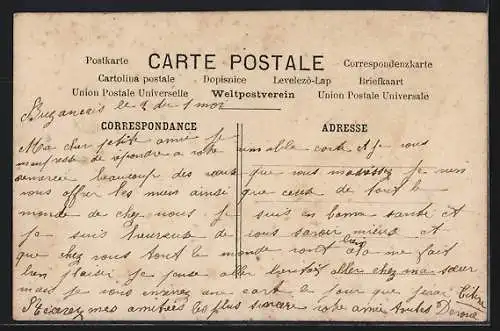 Postkarte CARTE POSTALE Correspondenzkarte
Cartolina postale Dopisnice Levelező-Lap Briefkaart
Union Postale Universelle Weltpostverein Union Postale Universale
Buzançais le 2 du 1 moi
CORRESPONDANCE ADRESSE
Ma chère petite amie je
mempresse de répondre a votre
aimable carte et je vous
remercie beaucoup des vœux
que vous madressez je viens
vous offrir les miens ainsi
que ceux de tout le
monde de chez nous je
suis en bonne santé et
je suis heureuse de vous savoir mieux et
que chez vous tout le monde vont bien cela me fait
bien plaisir je pense aller bientôt aller chez ma sœur
mais je vous enverez une carte le jour que jirai
Recevez mes amitiées les plus sincère votre amie